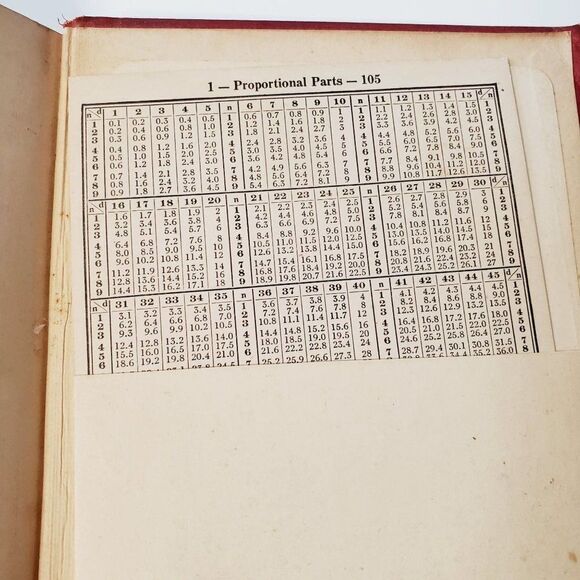 1 — Proportional Parts — 105
n d 1 2 3 4 5 n 6 7 8 9 10 n 11 12 13 14 15 d n
1 0.1 0.2 0.3 0.4 0.5 1 0.6 0.7 0.8 0.9 1 1 1.1 1.2 1.3 1.4 1.5 1
2 0.2 0.4 0.6 0.8 1.0 2 1.2 1.4 1.6 1.8 2 2 2.2 2.4 2.6 2.8 3.0 2
3 0.3 0.6 0.9 1.2 1.5 3 1.8 2.1 2.4 2.7 3 3 3.3 3.6 3.9 4.2 4.5 3
4 0.4 0.8 1.2 1.6 2.0 4 2.4 2.8 3.2 3.6 4 4 4.4 4.8 5.2 5.6 6.0 4
5 0.5 1.0 1.5 2.0 2.5 5 3.0 3.5 4.0 4.5 5 5 5.5 6.0 6.5 7.0 7.5 5
6 0.6 1.2 1.8 2.4 3.0 6 3.6 4.2 4.8 5.4 6 6 6.6 7.2 7.8 8.4 9.0 6
7 0.7 1.4 2.1 2.8 3.5 7 4.2 4.9 5.6 6.3 7 7 7.7 8.4 9.1 9.8 10.5 7
8 0.8 1.6 2.4 3.2 4.0 8 4.8 5.6 6.4 7.2 8 8 8.8 9.6 10.4 11.2 12.0 8
9 0.9 1.8 2.7 3.6 4.5 9 5.4 6.3 7.2 8.1 9 9 9.9 10.8 11.7 12.6 13.5 9
n d 16 17 18 19 20 n 21 22 23 24 25 n 26 27 28 29 30 d n
1 1.6 1.7 1.8 1.9 2 1 2.1 2.2 2.3 2.4 2.5 1 2.6 2.7 2.8 2.9 3 1
2 3.2 3.4 3.6 3.8 4 2 4.2 4.4 4.6 4.8 5.0 2 5.2 5.4 5.6 5.8 6 2
3 4.8 5.1 5.4 5.7 6 3 6.3 6.6 6.9 7.2 7.5 3 7.8 8.1 8.4 8.7 9 3
4 6.4 6.8 7.2 7.6 8 4 8.4 8.8 9.2 9.6 10.0 4 10.4 10.8 11.2 11.6 12 4
5 8.0 8.5 9.0 9.5 10 5 10.5 11.0 11.5 12.0 12.5 5 13.0 13.5 14.0 14.5 15 5
6 9.6 10.2 10.8 11.4 12 6 12.6 13.2 13.8 14.4 15.0 6 15.6 16.2 16.8 17.4 18 6
7 11.2 11.9 12.6 13.3 14 7 14.7 15.4 16.1 16.8 17.5 7 18.2 18.9 19.6 20.3 21 7
8 12.8 13.6 14.4 15.2 16 8 16.8 17.6 18.4 19.2 20.0 8 20.8 21.6 22.4 23.2 24 8
9 14.4 15.3 16.2 17.1 18 9 18.9 19.8 20.7 21.6 22.5 9 23.4 24.3 25.2 26.1 27 9
n d 31 32 33 34 35 n 36 37 38 39 40 n 41 42 43 44 45 d n
1 3.1 3.2 3.3 3.4 3.5 1 3.6 3.7 3.8 3.9 4 1 4.1 4.2 4.3 4.4 4.5 1
2 6.2 6.4 6.6 6.8 7.0 2 7.2 7.4 7.6 7.8 8 2 8.2 8.4 8.6 8.8 9.0 2
3 9.3 9.6 9.9 10.2 10.5 3 10.8 11.1 11.4 11.7 12 3 12.3 12.6 12.9 13.2 13.5 3
4 12.4 12.8 13.2 13.6 14.0 4 14.4 14.8 15.2 15.6 16 4 16.4 16.8 17.2 17.6 18.0 4
5 15.5 16.0 16.5 17.0 17.5 5 18.0 18.5 19.0 19.5 20 5 20.5 21.0 21.5 22.0 22.5 5
6 18.6 19.2 19.8 20.4 21.0 6 21.6 22.2 22.8 23.4 24 6 24.6 25.2 25.8 26.4 27.0 6
7 25.2 25.9 26.6 27.3 28 7 28.7 29.4 30.1 30.8 31.5 7
8 32.8 33.6 34.4 35.2 36.0 8